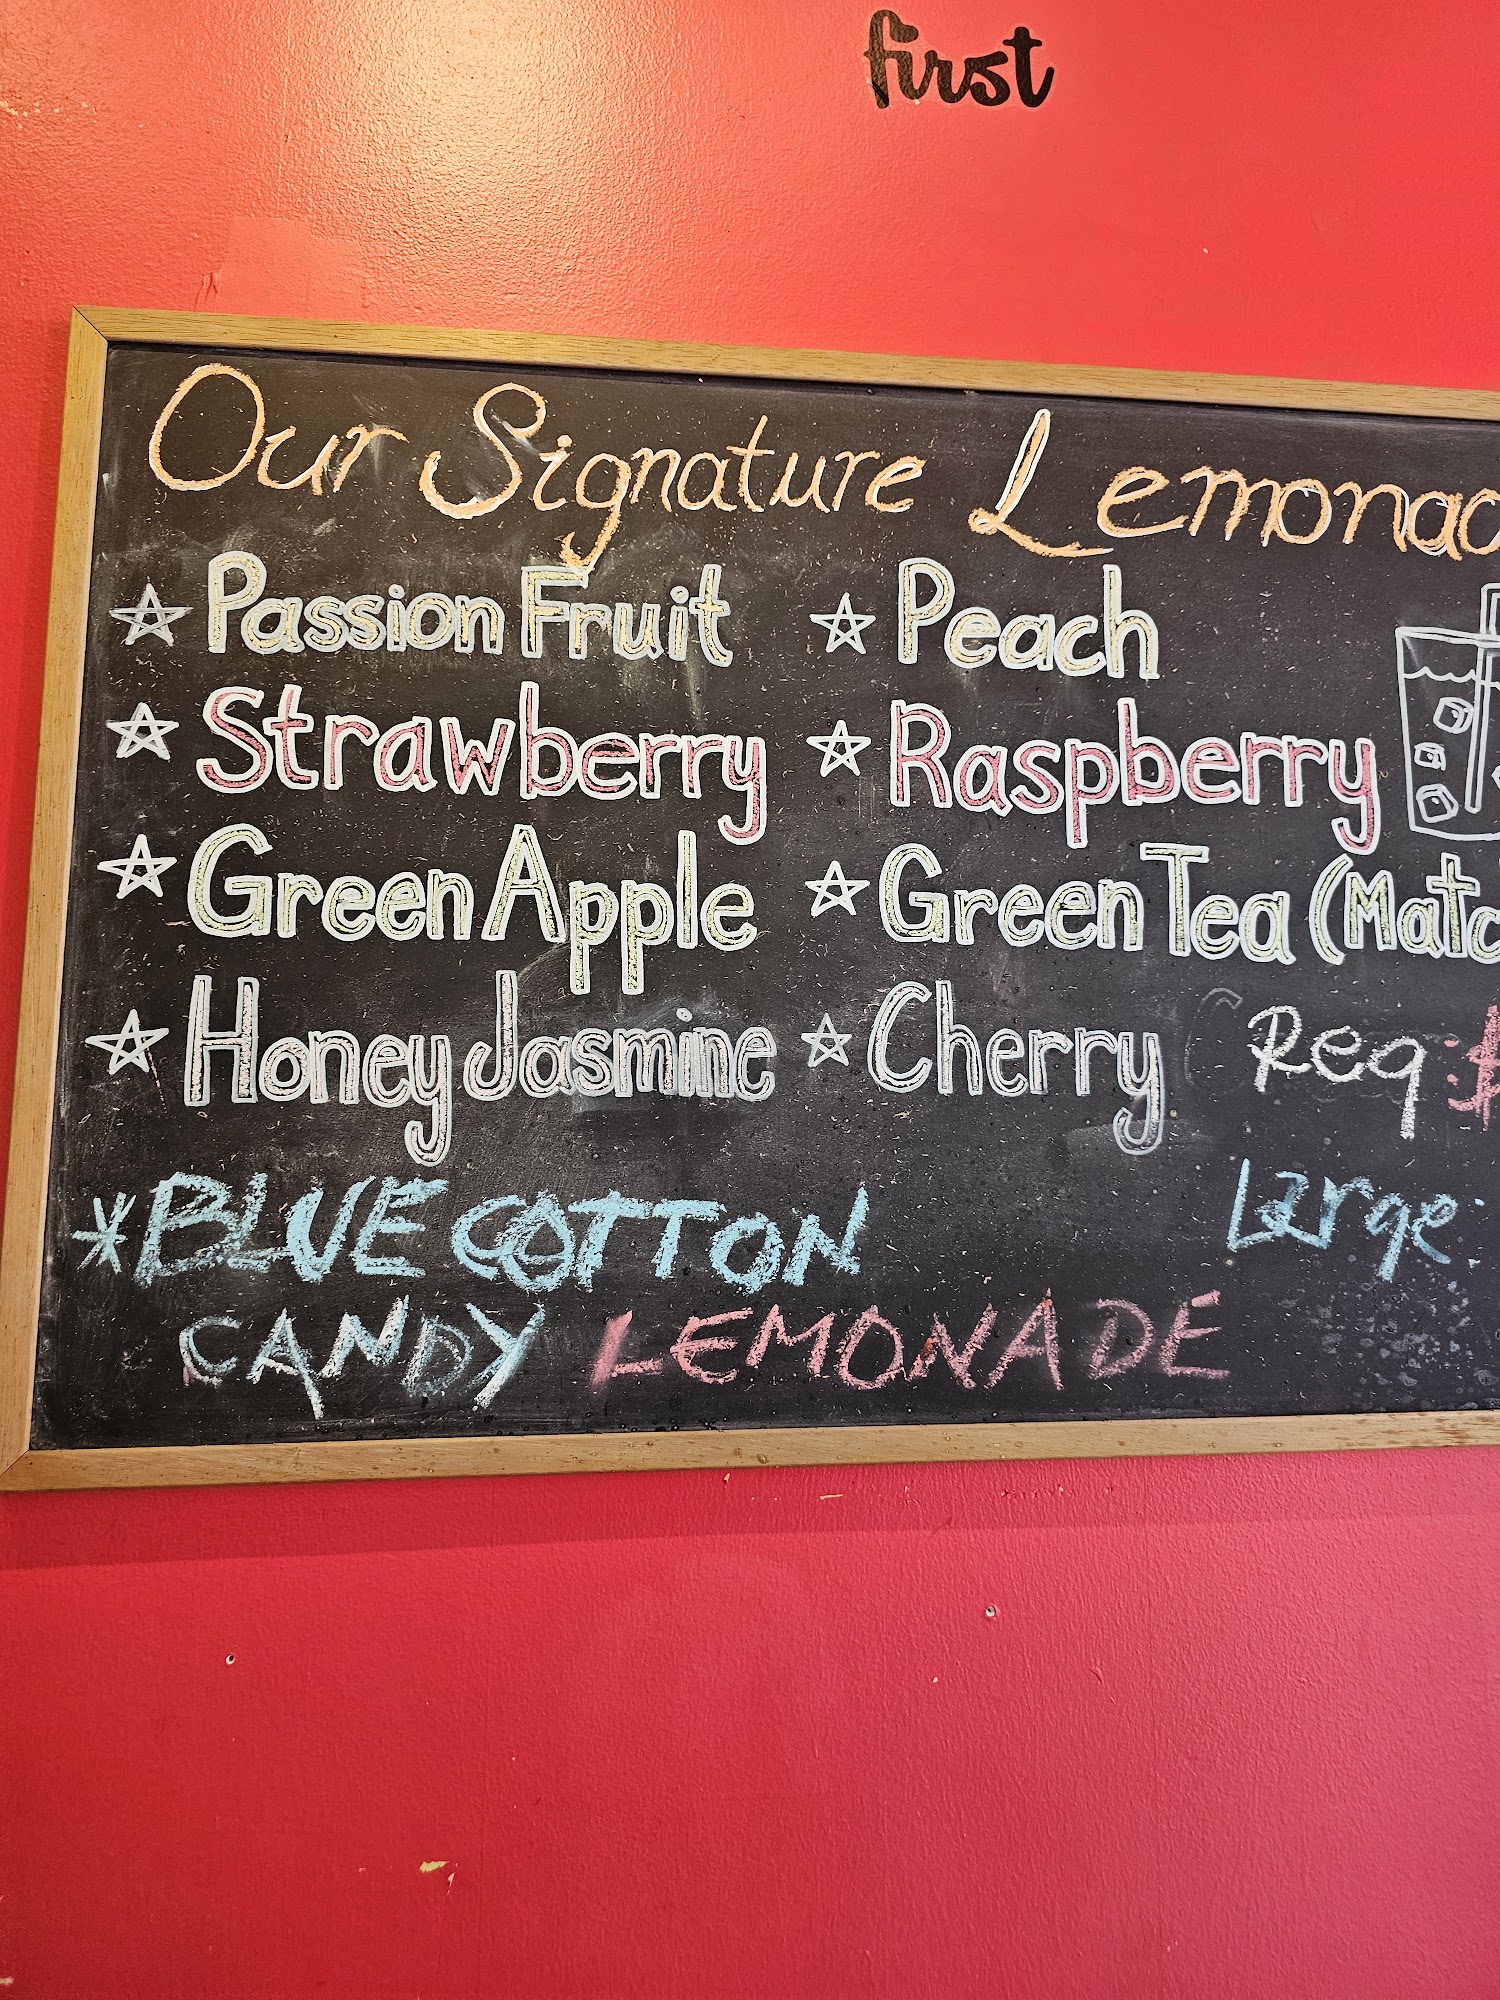 first
Our Signature Lemonad
Passion Fruit
Peach
Strawberry
Raspberry
Green Apple
Green Tea (Matc
Honey Jasmine
Cherry
Reg: $
*BLUE COTTON
Large:
CANDY LEMONADE